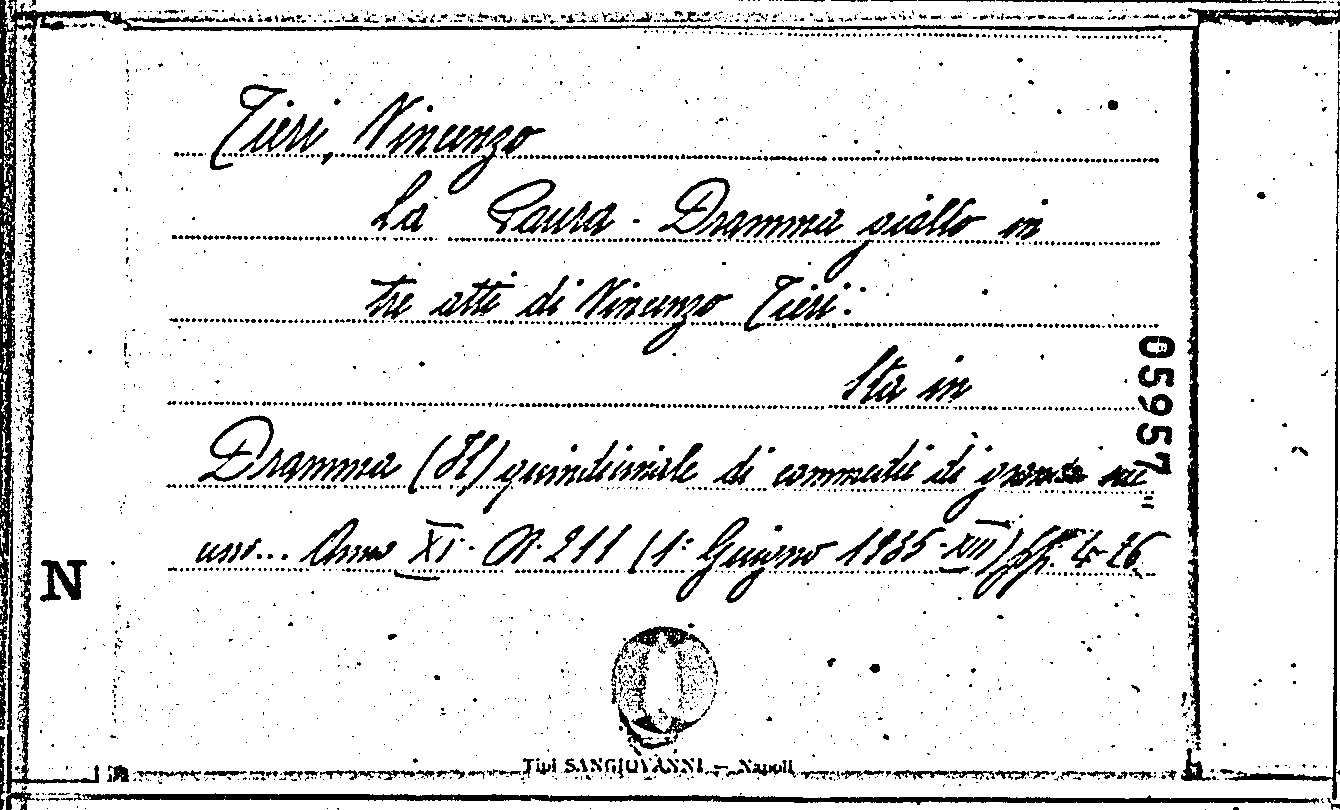 Tieri, Vincenzo
La Paura - Dramma giallo in
tre atti di Vincenzo Tieri:
Sta in
Dramma (Il) quindicinale di commedie di grande suc=
cesso... Anno XI. N. 211 (1° Giugno 1935-XIII) pp. 4-26.
05957
N
Tipi SANGIOVANNI — Napoli